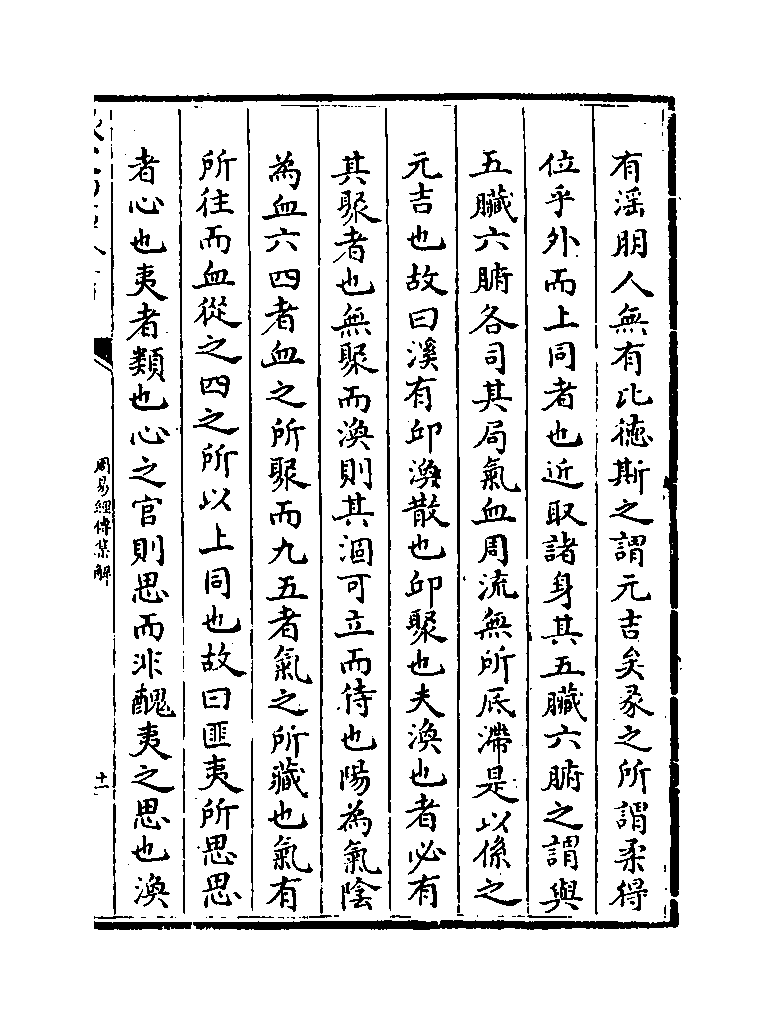 有滛朋人無有比德斯之謂元吉矣彖之所謂柔得
位乎外而上同者也近取諸身其五臟六腑之謂與
五臟六腑各司其局氣血周流無所底滯是以係之
元吉也故曰渙有邱渙散也邱聚也夫渙也者必有
其聚者也無聚而渙則其涸可立而待也陽為氣陰
為血六四者血之所聚而九五者氣之所藏也氣有
所往而血從之四之所以上同也故曰匪夷所思思
者心也夷者類也心之官則思而非醜夷之思也渙
周易經傳集解
十二